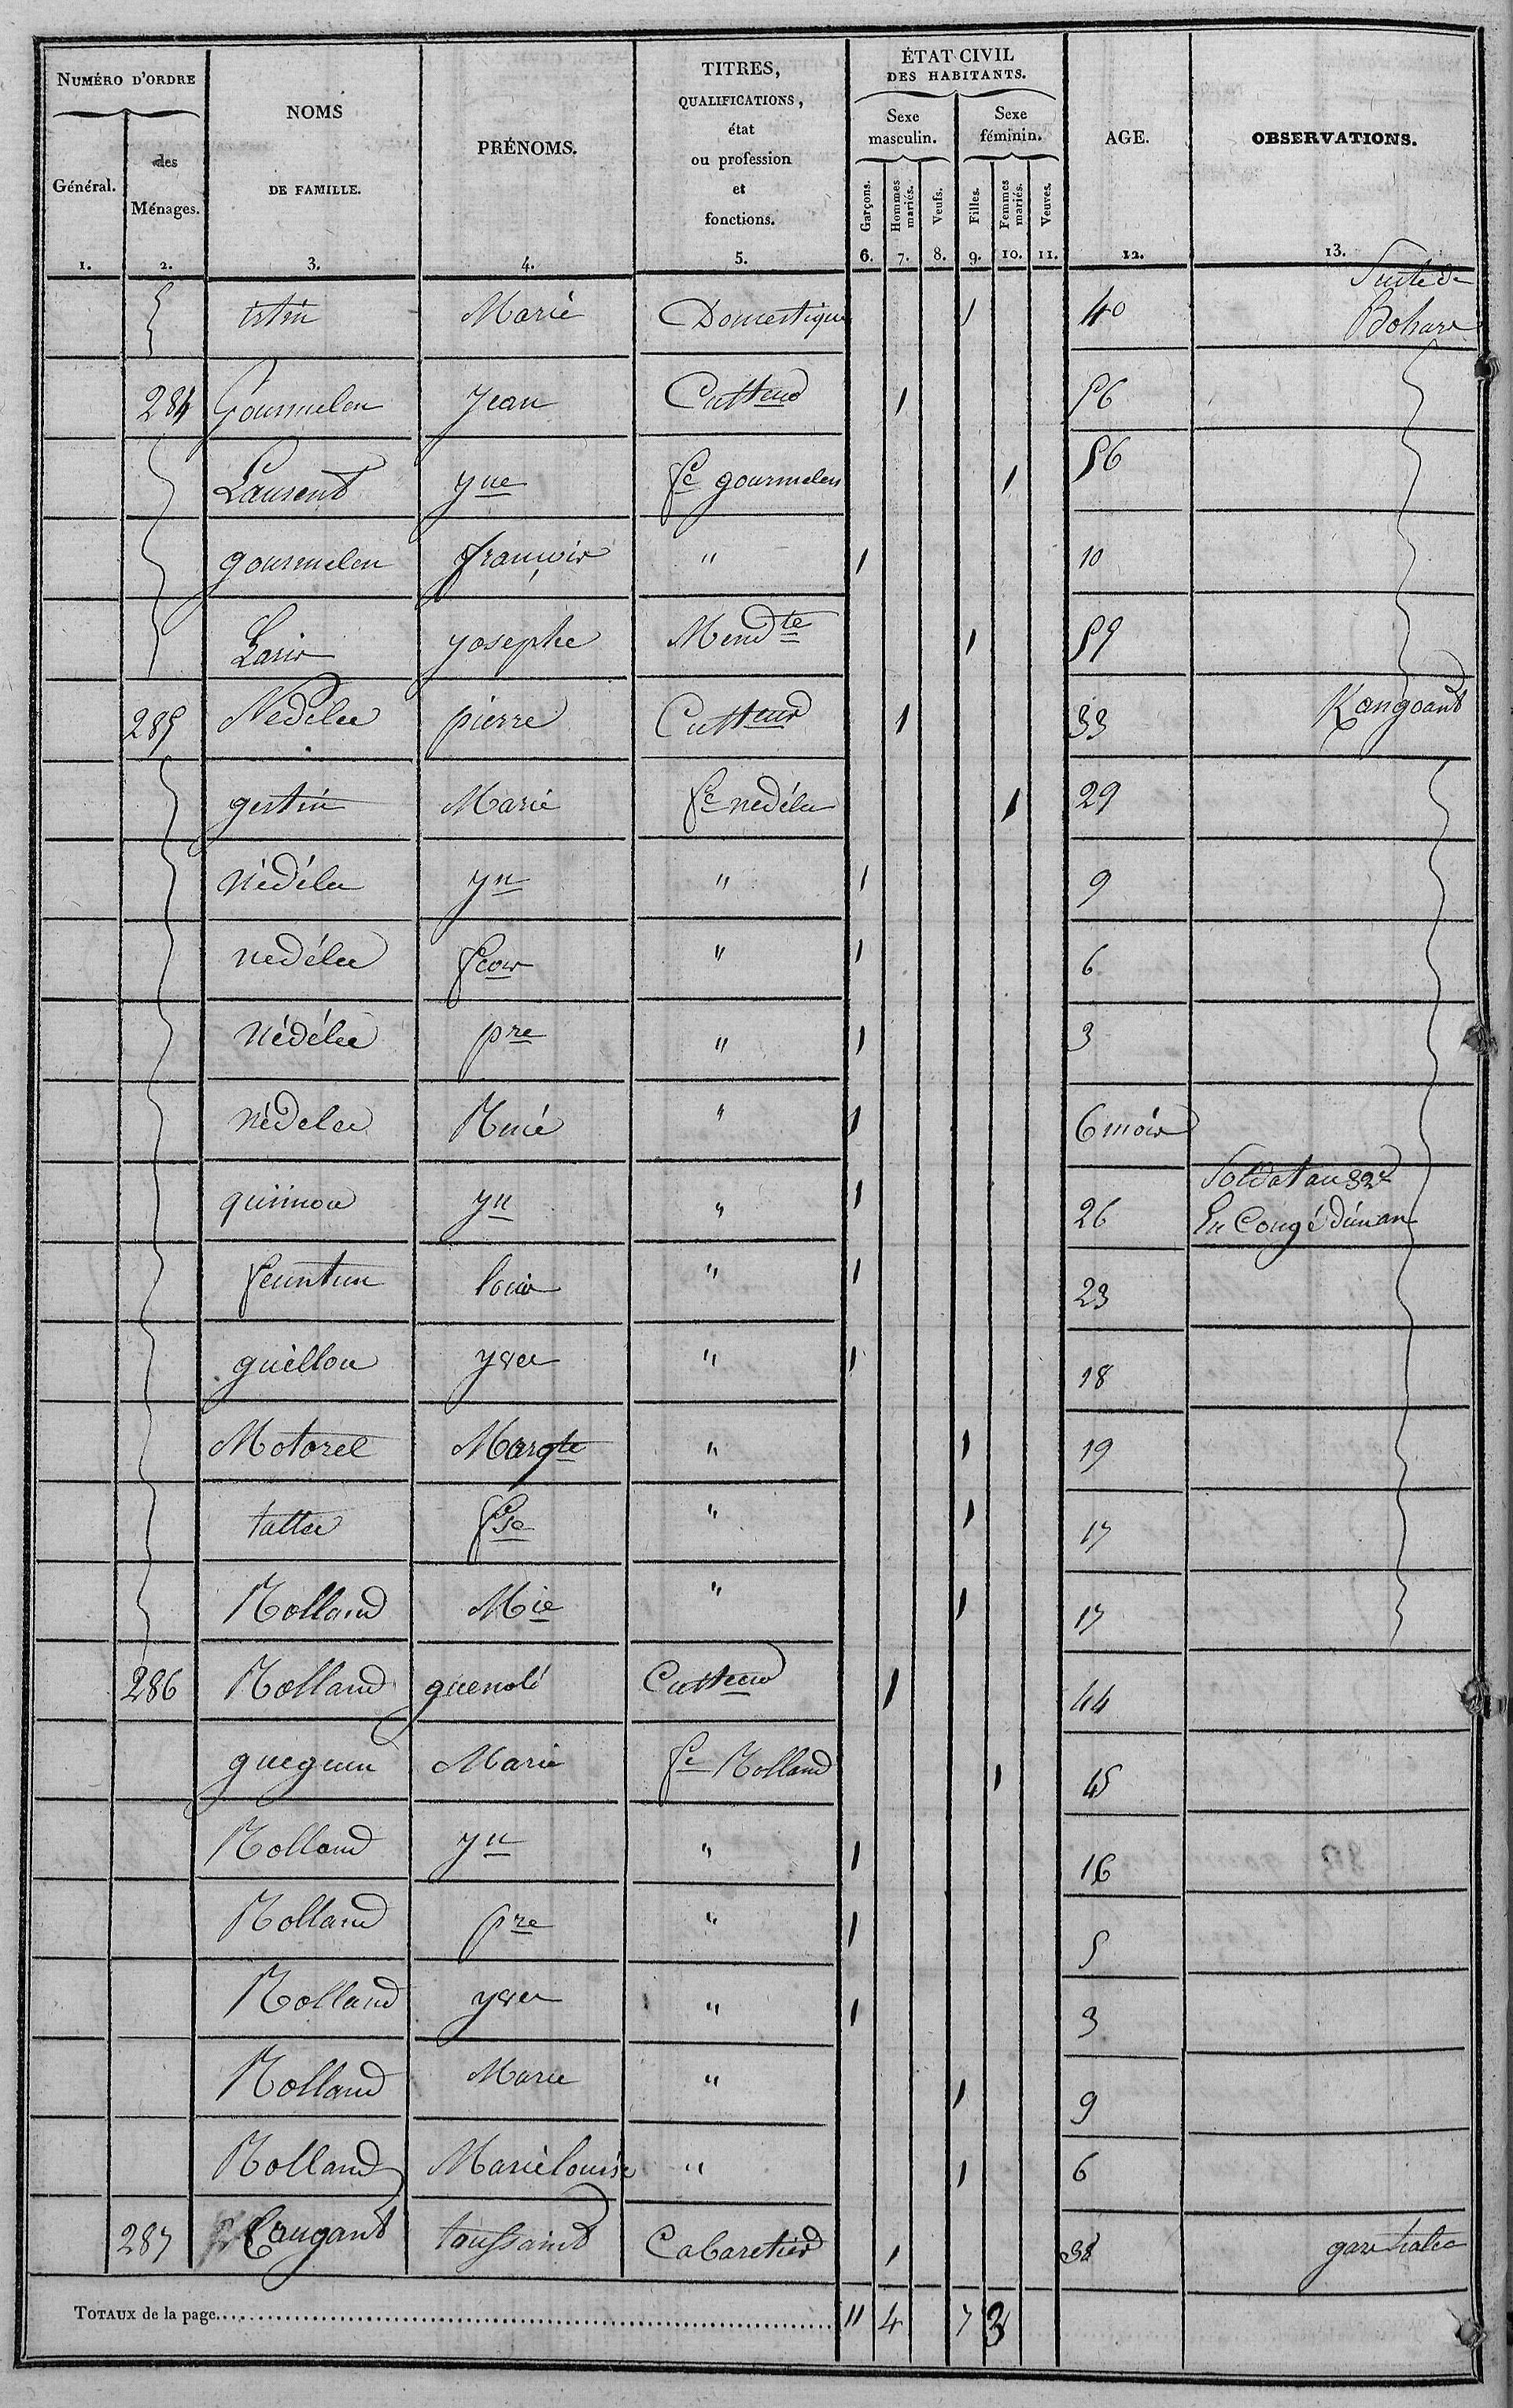 NUMÉRO D'ORDRE
Général.
des Ménages.
NOMS DE FAMILLE.
PRÉNOMS.
TITRES, QUALIFICATIONS, état ou profession et fonctions.
ÉTAT CIVIL DES HABITANTS.
Sexe masculin.
Sexe féminin.
Garçons.
Hommes mariés.
Veufs.
Filles.
Femmes mariés.
Veuves.
AGE.
OBSERVATIONS.
1. 2. 3. 4. 5. 6. 7. 8. 9. 10. 11. 12. 13.
Suite de
istin Marie Domestique 1 40 Bohars
284 Gourmelen Jean Cultteur 1 56
Laurent yne fe gourmelen 1 56
gourmelen françois " 1 10
Laris yosephe Mendte 1 59
285 Nedelec pierre Cultteur 1 33 Kangoant
gestin Marie fe nedélec 1 29
Nédélec yn " 1 9
nedélec fcois " 1 6
Nédélec pre " 1 3
nédelec René " 1 6 mois
Soldat au 32e
quiinou yn " 1 26 En Congé d'un an
feuntun louis " 1 23
guéllou yves " 1 18
Motorel Margte " 1 19
tattec fse " 1 17
Rolland Mie " 1 17
286 Rolland guenolé Cultteur 1 44
gueguen Marie fe Rolland 1 45
Rolland yn " 1 16
Rolland pre " 1 5
Rolland yves " 1 3
Rolland Marie " 1 9
Rolland Marie louise " 1 6
287 Caugant toussaint Cabaretier 1 38
TOTAUX de la page 11 4 7 3